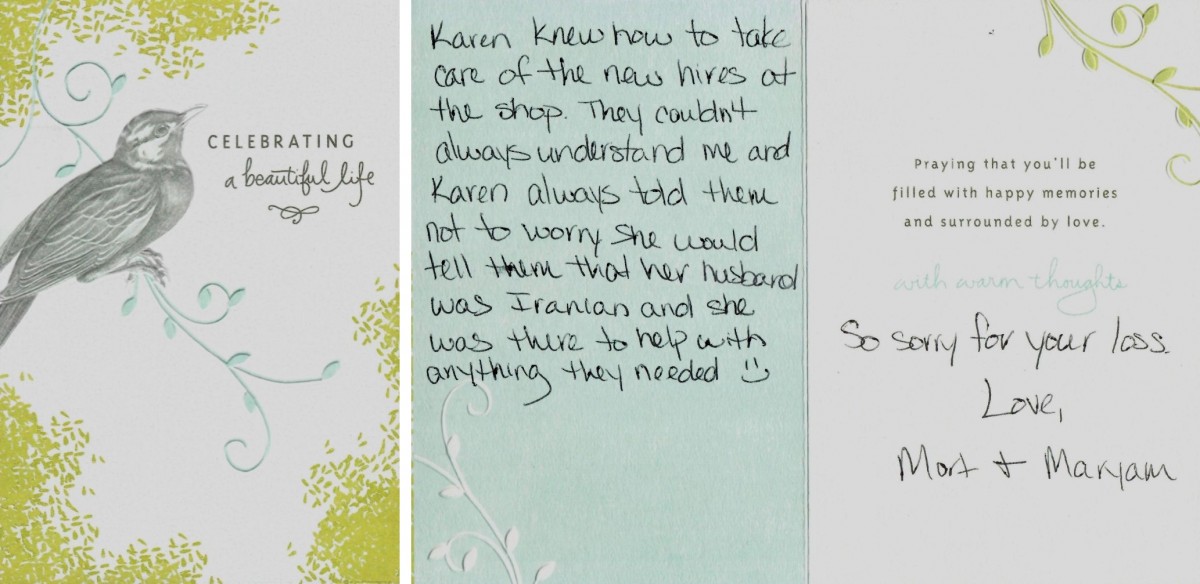 CELEBRATING
a beautiful life
Karen knew how to take
care of the new hires at
the shop. They couldn't
always understand me and
Karen always told them
not to worry she would
tell them that her husband
was Iranian and she
was there to help with
anything they needed :)
Praying that you'll be
filled with happy memories
and surrounded by love.
with warm thoughts
So sorry for your loss.
Love,
Mort + Maryam